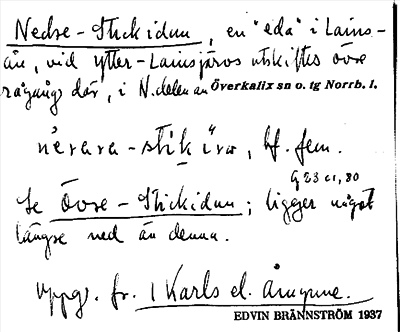 Nedre-Stickidun, en "eda" i Lains-
ån, vid Ytter-Lainsjärvs utskiftes övre
rågång där, i N. delen av Överkalix sn o. tg Norrb. l.
nérara-stik bf. fem.
G 23 c1, 80
Se Övre-Stickidun; ligger något
längre ned än denna.
Uppg. fr. 1 Karls el.
EDVIN BRÄNNSTRÖM 1937